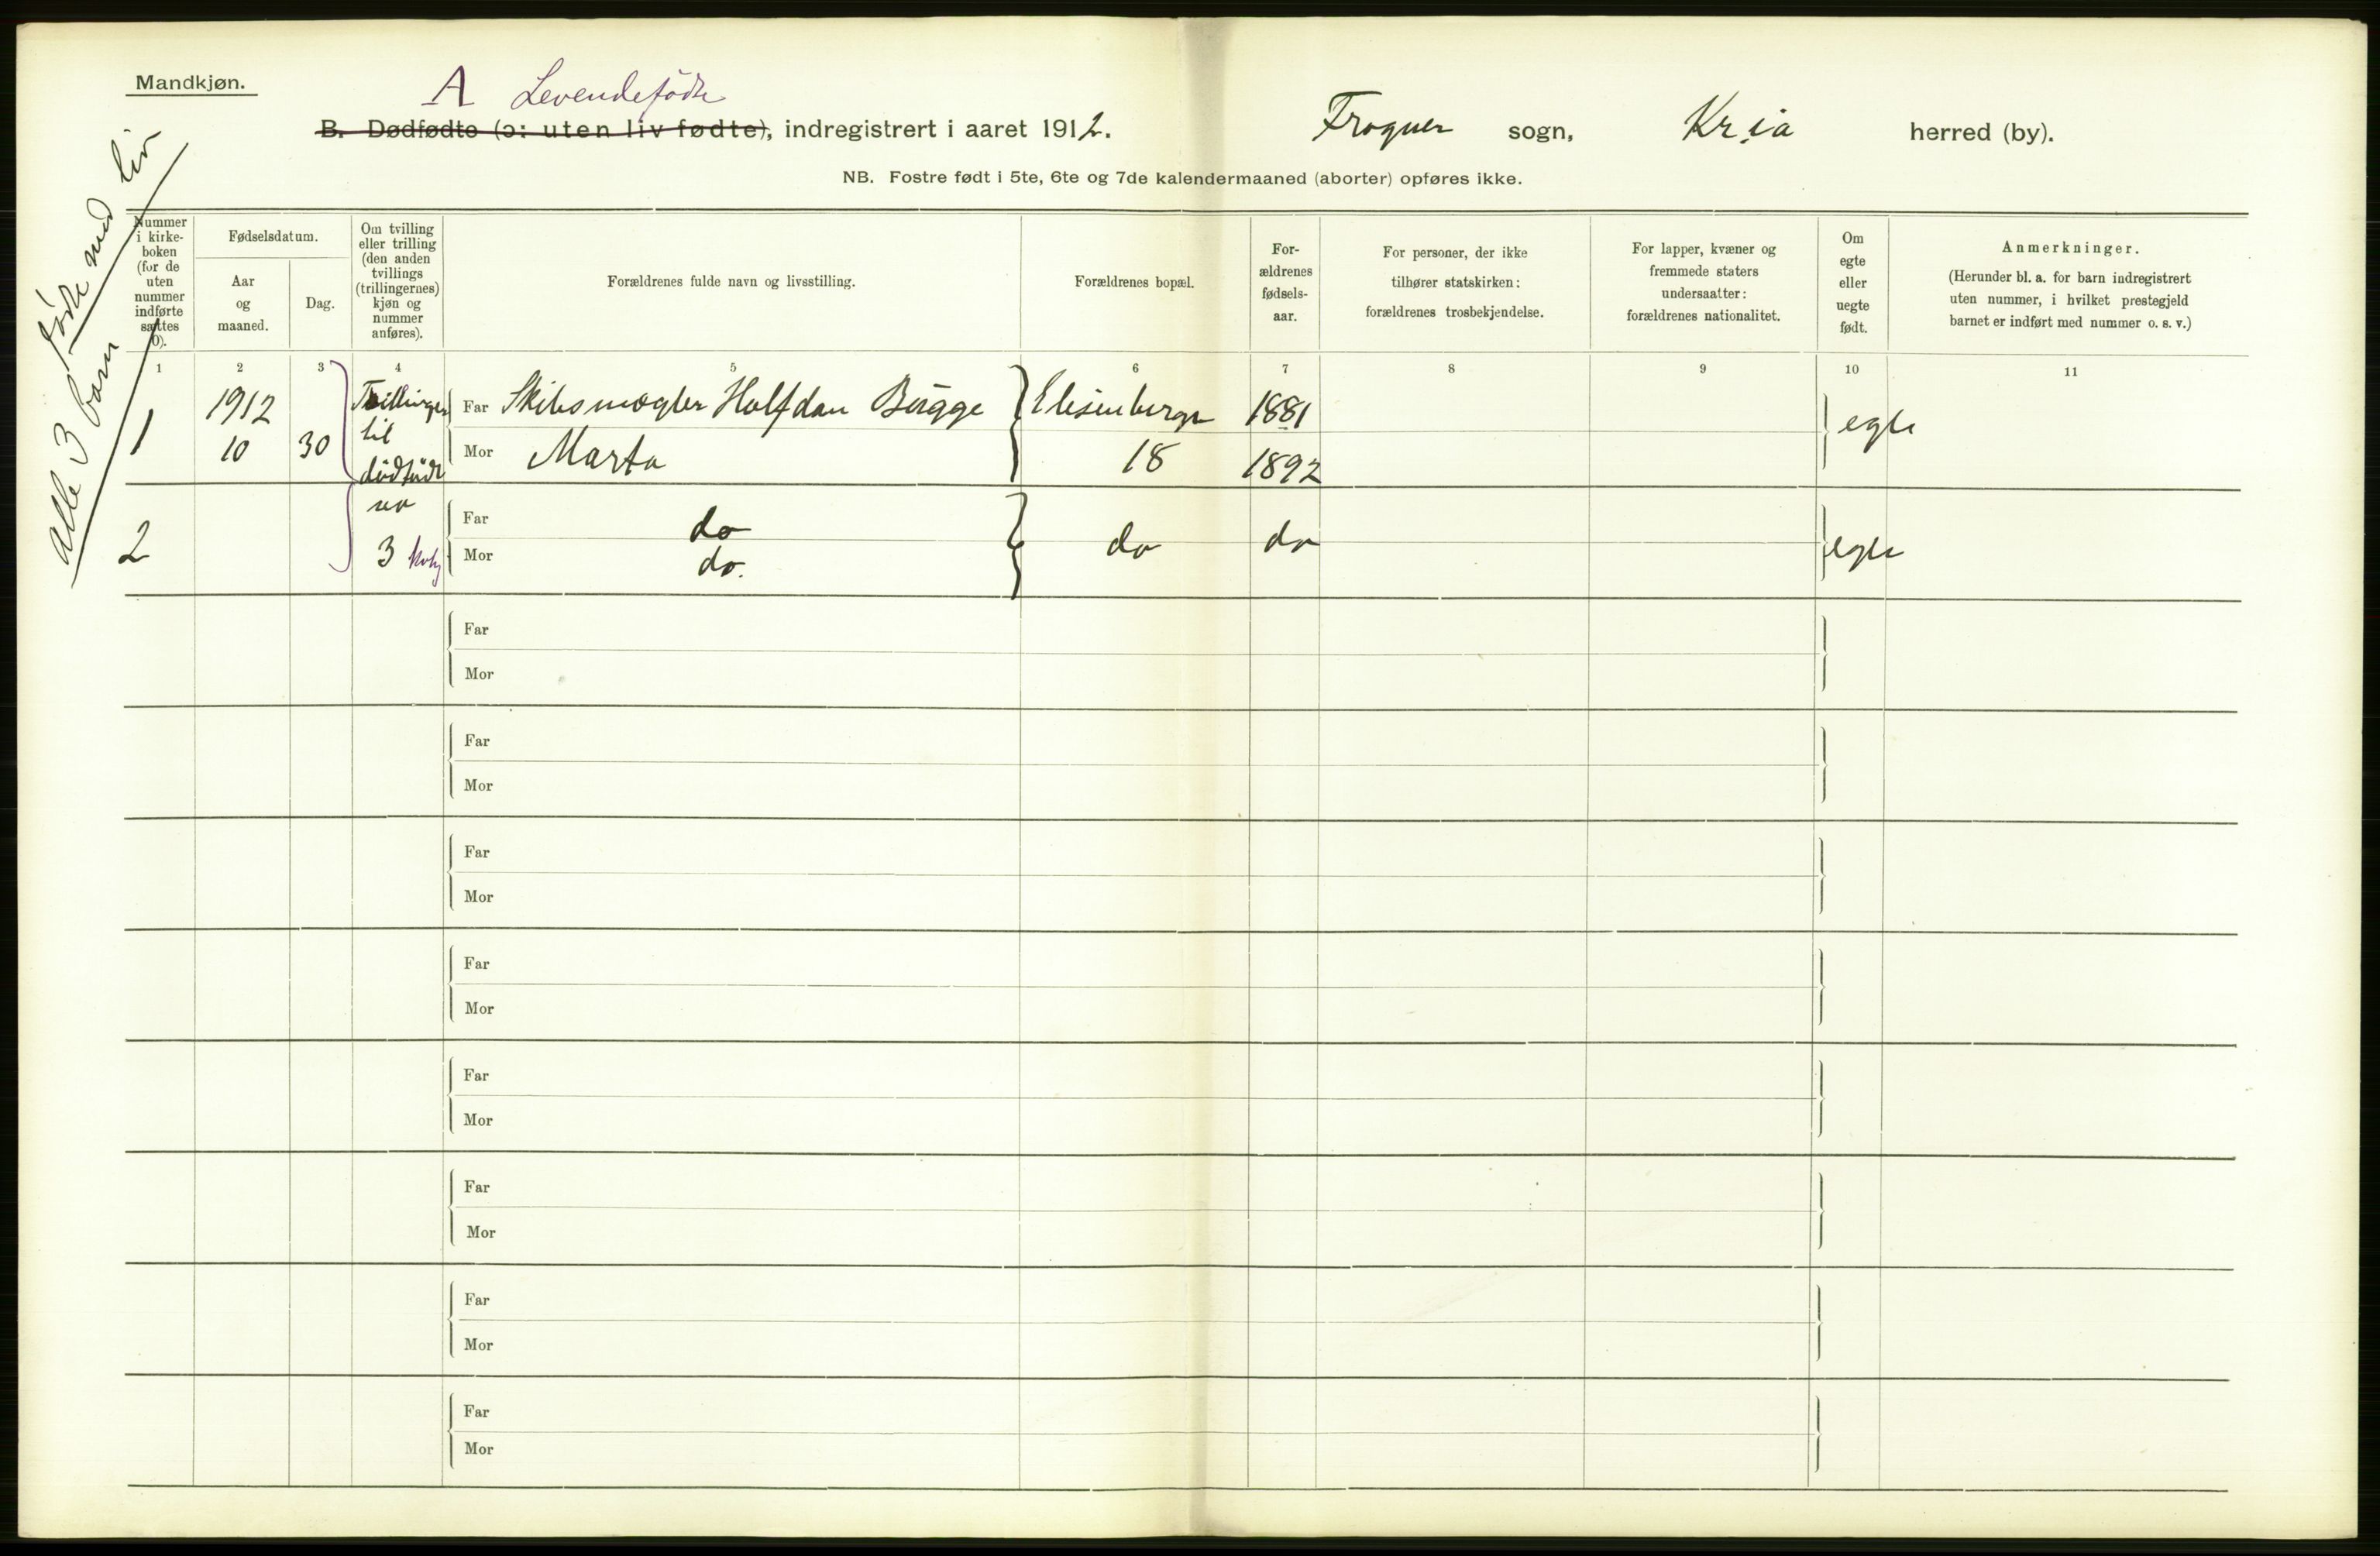 Mandkjøn.
A Levendefødte
B. Dødfødte (ɔ: uten liv fødte), indregistrert i aaret 1912. Frogner sogn, Kr.ia herred (by).
NB. Fostre født i 5te, 6te og 7de kalendermaaned (aborter) opføres ikke.
alle 3 barn
fødte med liv
Nummer
i kirke-
boken
(for de
uten
nummer
indførte
sættes
0).
Fødselsdatum.
Aar
og
maaned.
Dag.
Om tvilling
eller trilling
(den anden
tvillings
(trillingernes)
kjøn og
nummer
anføres).
Forældrenes fulde navn og livsstilling.
Forældrenes bopæl.
For-
ældrenes
fødsels-
aar.
For personer, der ikke
tilhører statskirken:
forældrenes trosbekjendelse.
For lapper, kvæner og
fremmede staters
undersaatter:
forældrenes nationalitet.
Om
egte
eller
uegte
født.
Anmerkninger.
(Herunder bl. a. for barn indregistrert
uten nummer, i hvilket prestegjeld
barnet er indført med nummer o. s. v.)
1 2 3 4 5 6 7 8 9 10 11
1 1912 Trillinger Far Skibsmægler Halfdan Bugge Elisenbergv 1881 egte
10 30 til Mor Marta 18 1892
dødfødt
no
2 Far do do do egte
3 kvk Mor do.
Far
Mor
Far
Mor
Far
Mor
Far
Mor
Far
Mor
Far
Mor
Far
Mor
Far
Mor